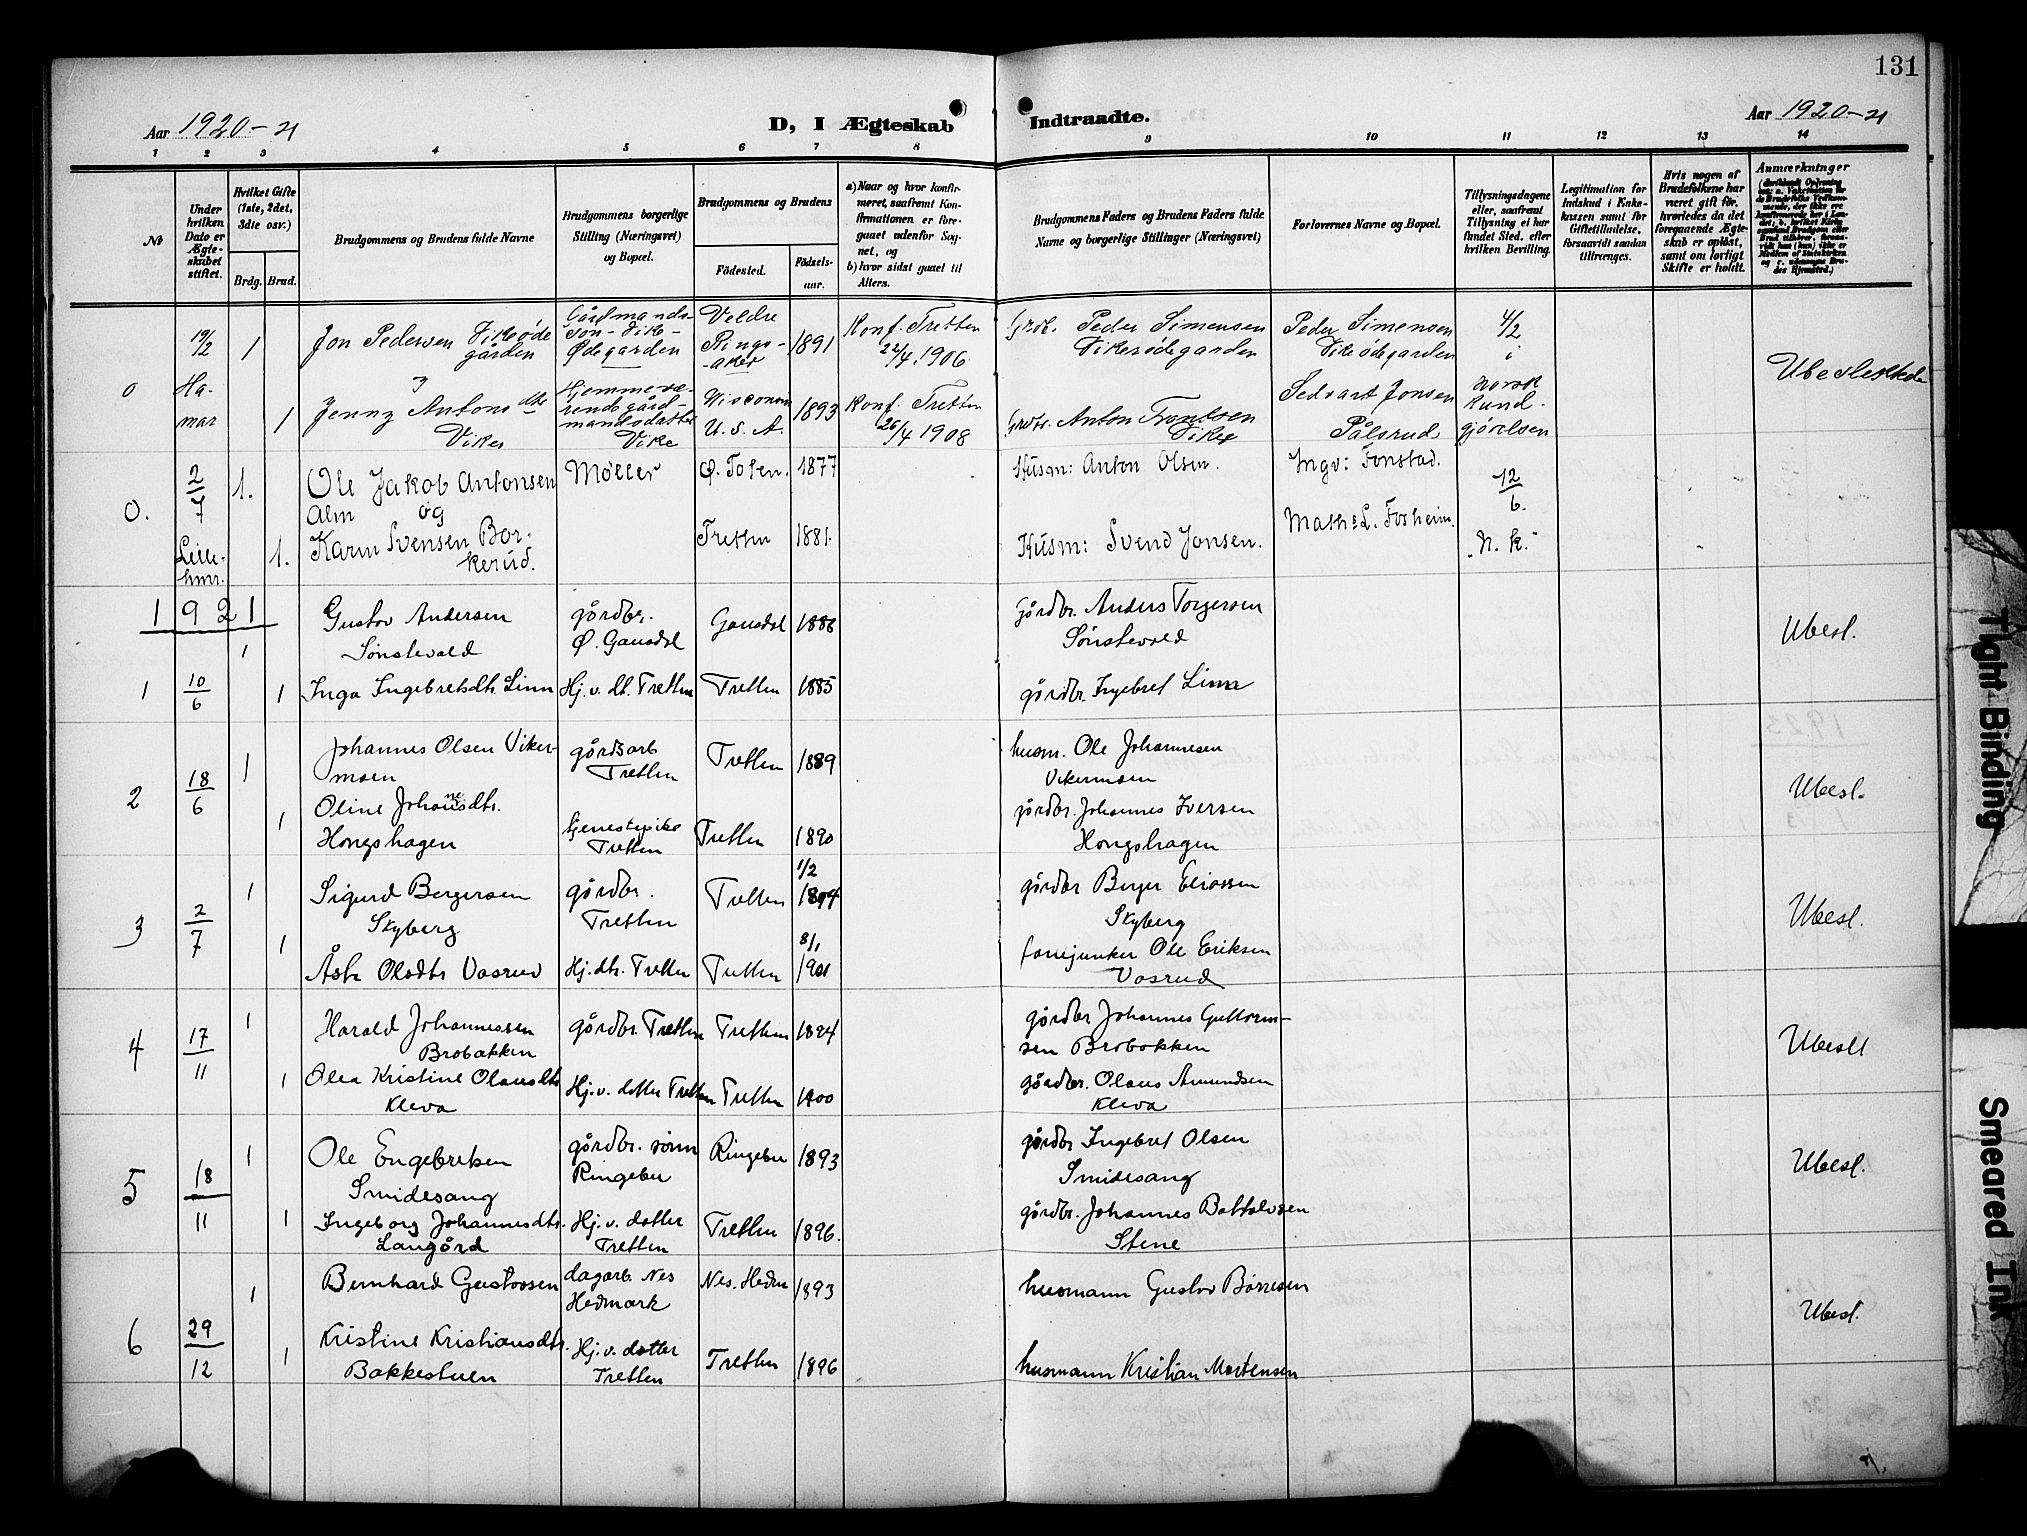 131
Aar 1920-21
D, I Ægteskab Indtraadte.
Aar 1920-21
1 2 3 4 5 6 7 8 9 10 11 12 13 14
No
Under hvilken Dato er Ægteskabet stiftet.
Hvilket Gifte (1ste, 2det, 3die osv.)
Brdg. Brud.
Brudgommens og Brudens fulde Navne
Brudgommens borgerlige Stilling (Næringsvei) og Bopæl.
Brudgommens og Brudens
Fødested.
Fødselsaar.
a) Naar og hvor konfirmeret, saafremt Konfirmationen er foregaaet udenfor Sognet, og
b) hvor sidst gaaet til Alters.
Brudgommens Faders og Brudens Faders fulde Navne og borgerlige Stillinger (Næringsvei)
Forlovernes Navne og Bopæl.
Tillysningsdagene eller, saafremt Tillysning ei har fundet Sted, efter hvilken Bevilling.
Legitimation for Indskud i Enkekassen samt for Giftetilladelse, forsaavidt saadan tiltrænges.
Hvis nogen af Brudefolkene har været gift før, hvorledes da det foregaaende Ægteskab er opløst, samt om lovligt Skifte er holdt.
Anmærkninger
0 19/2 Hamar
1 Jon Pedersen Vikeødegården
Gårdmandssøn - Vike-Ødegarden
Veldre Ringsaker 1891
Konf. Tretten 22/4 1906
Grdb. Peder Simensen Vikeødegarden
Peder Simensen Vikeødegarden
4/2 i norsk kundgjörelsen
1 Jenny Antonsdtr Vike
Hjemmeværende gårdmandsdatter Vike
Wisconsin U. S. A. 1893
Konf. Tretten 26/4 1908
Grdb. Anton Frantsen Vike
Sedvart Jonsen Pålsrud
Ubeslektede
0. 2/7 Lillehmr.
1. Ole Jakob Antonsen Alm og
Møller Ø. Toten. 1877
Husm: Anton Olsen.
Ingv: Fonstad.
12/6. "N. k."
1. Karin Svensen Borkerud.
Tretten 1881.
Husm: Svend Jonsen.
Maths L. Forheim.
1921
1 10/6
1 Gustav Andersen Sønstevold
gårdbr. Ø. Gausdal Gausdal 1886
gårdbr. Anders Torgersen Sønstevold
Ubesl.
1 Inga Ingebretsdtr. Linn
Hj. v. dt. Tretten Tretten 1885
gårdbr. Ingebret Linn
2 18/6
1 Johannes Olsen Vikermoen
gårdsarb Tretten Tretten 1889
husm. Ole Johannesen Vikermoen
Ubesl.
1 Oline Johannesdtr. Hongshagen
tjenestepike Tretten Tretten 1890
gårdbr. Johannes Iversen Hongshagen
3 2/7
1 Sigurd Bergersen Skyberg
gårdbr. Tretten Tretten 1/2 1894
gårdbr Berger Eliassen Skyberg
Ubesl.
1 Åste Olsdtr Vasrud
Hj. dtr. Tretten Tretten 8/1 1901
fanejunker Ole Eriksen Vasrud
4 17/11
1 Harald Johannessen Brobakken
gårdbr. Tretten Tretten 1894
gårdbr Johannes Guttormsen Brobakken
Ubesl
1 Olea Kristine Olausdtr Kleva
Hj. v. datter Tretten Tretten 1900
gårdbr. Olaus Amundsen Kleva
5 18/11
1 Ole Engebretsen Smidesang
gårdbr. sønn Ringebu Ringebu 1893
gårdbr Ingebret Olsen Smidesang
Ubesl.
1 Ingeborg Johannesdtr. Langård
Hj. v. datter Tretten Tretten 1896.
gårdbr. Johannes Bottolvsen Stene
6 29/12
1 Bernhard Gustavsen
dagarb. Nes Hedmark Nes. Hedm 1893
husmann Gustav Børresen
Ubesl.
1 Kristine Kristiansdtr. Bakkestuen
Hj. v. datter Tretten Tretten 1896
husmann Kristian Mortensen
Tight Binding
Smeared Ink